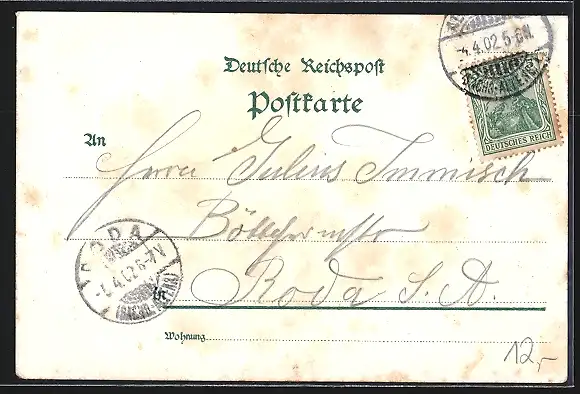 4.4.02 5-6N.
(SACHS.-ALTENB.)
Deutsche Reichspost
Postkarte
DEUTSCHES REICH
An
Herrn Julius Immisch
Böttchermstr
RODA
4.4.02 6-7N
(SACHS.-ALTENB.)
Roda S. A.
Wohnung
12,-